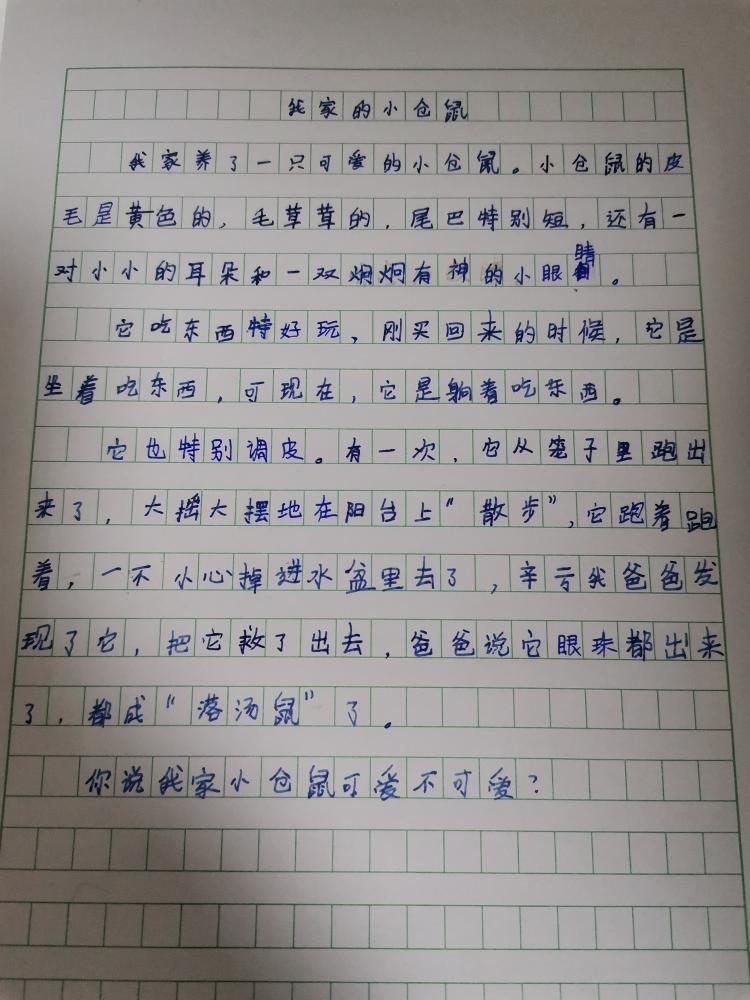 我家的小仓鼠
我家养了一只可爱的小仓鼠。小仓鼠的皮
毛是黄色的，毛茸茸的，尾巴特别短，还有一
对小小的耳朵和一双炯炯有神的小眼睛。
它吃东西特好玩，刚买回来的时候，它是
坐着吃东西，可现在，它是躺着吃东西。
它也特别调皮。有一次，它从笼子里跑出
来了，大摇大摆地在阳台上“散步”，它跑着跑
着，一不小心掉进水盆里去了，辛亏我爸爸发
现了它，把它救了出去，爸爸说它眼珠都出来
了，都成“落汤鼠”了。
你说我家小仓鼠可爱不可爱？